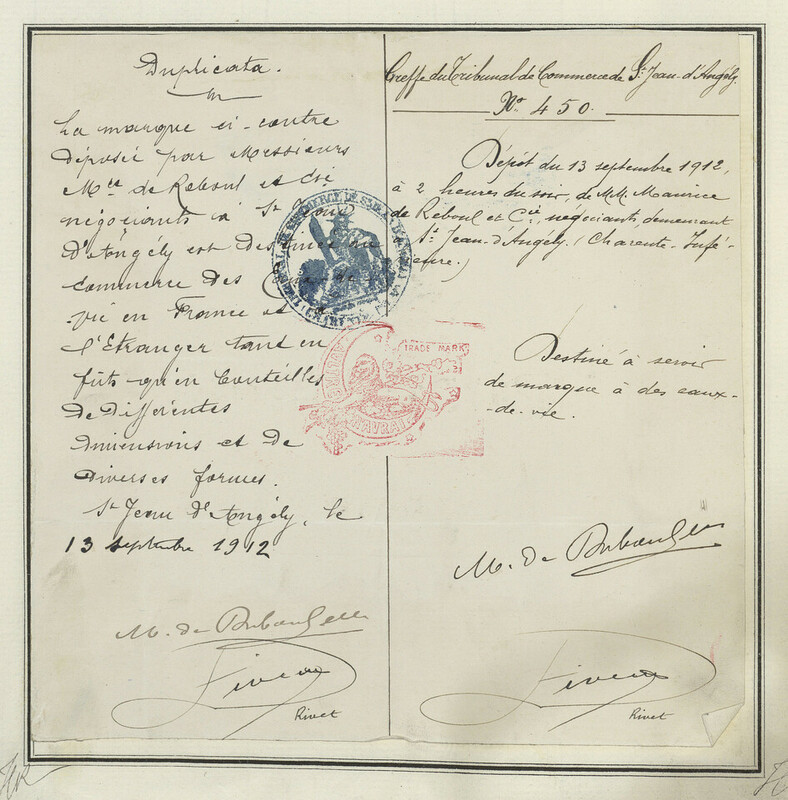 Duplicata.
La marque ci-contre
déposée par Messieurs
Mce de Reboul et Cie
négociants à St Jean
d'Angély est destinée au
commerce des Eaux-de
-vie en France et
l'Etranger tant en
fûts qu'en bouteilles
de différentes
dimensions et de
diverses formes.
St Jean d'Angély, le
13 septembre 1912
M. de Reboul
Rivet
Greffe du Tribunal de Commerce de St Jean-d'Angély.
No 450.
Dépôt du 13 septembre 1912,
à 2 heures du soir, de MM. Maurice
de Reboul et Cie, négociants, demeurant
St Jean-d'Angély (Charente-Infé-
eure.)
TRADE MARK
Destiné à servir
de marque à des eaux-
-de-vie.
M. de Reboul
Rivet